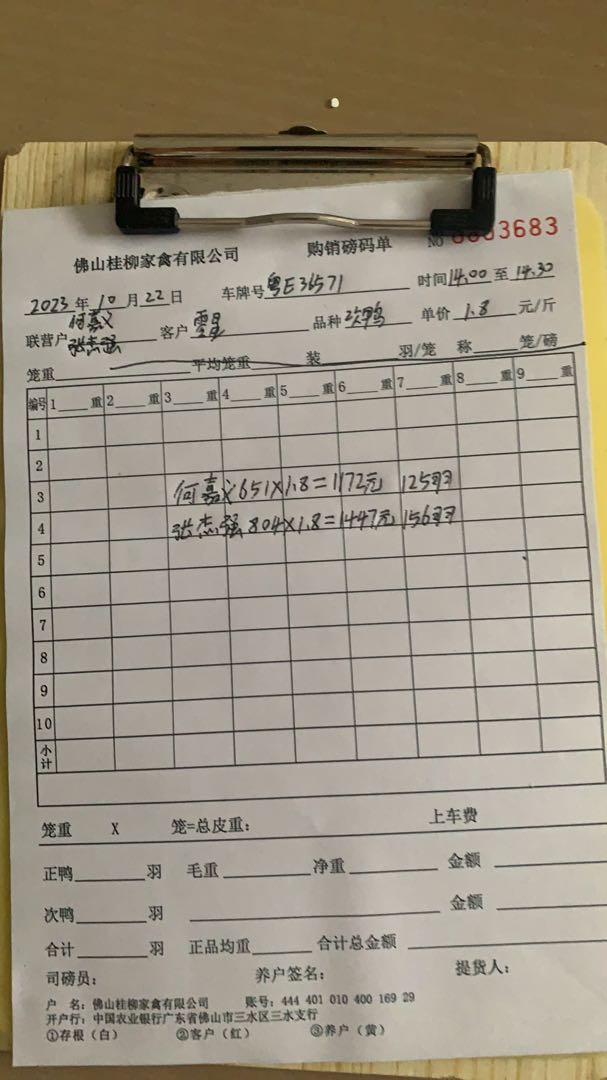 佛山桂柳家禽有限公司 购销磅码单 NO 3683
2023年10月22日 车牌号粤E36571 时间14.00至14.30
何嘉义
联营户张杰强 客户 品种次鸭 单价1.8元/斤
笼重 平均笼重 装 羽/笼 称 笼/磅
编号 1 重 2 重 3 重 4 重 5 重 6 重 7 重 8 重 9 重
1
2
3 何嘉义651X1.8=1172元 125羽
4 张杰强804X1.8=1447元156羽
5
6
7
8
9
10
小计
笼重 X 笼=总皮重: 上车费
正鸭 羽 毛重 净重 金额
次鸭 羽 金额
合计 羽 正品均重 合计总金额
司磅员: 养户签名: 提货人:
户 名: 佛山桂柳家禽有限公司 账号: 444 401 010 400 169 29
开户行: 中国农业银行广东省佛山市三水区三水支行
①存根（白） ②客户（红） ③养户（黄）